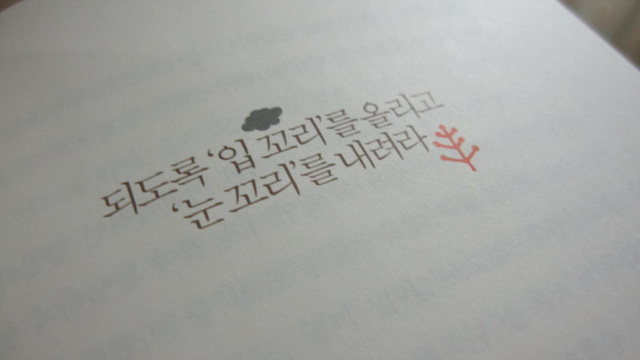 되도록 '입 꼬리'를 올리고
'눈 꼬리'를 내려라